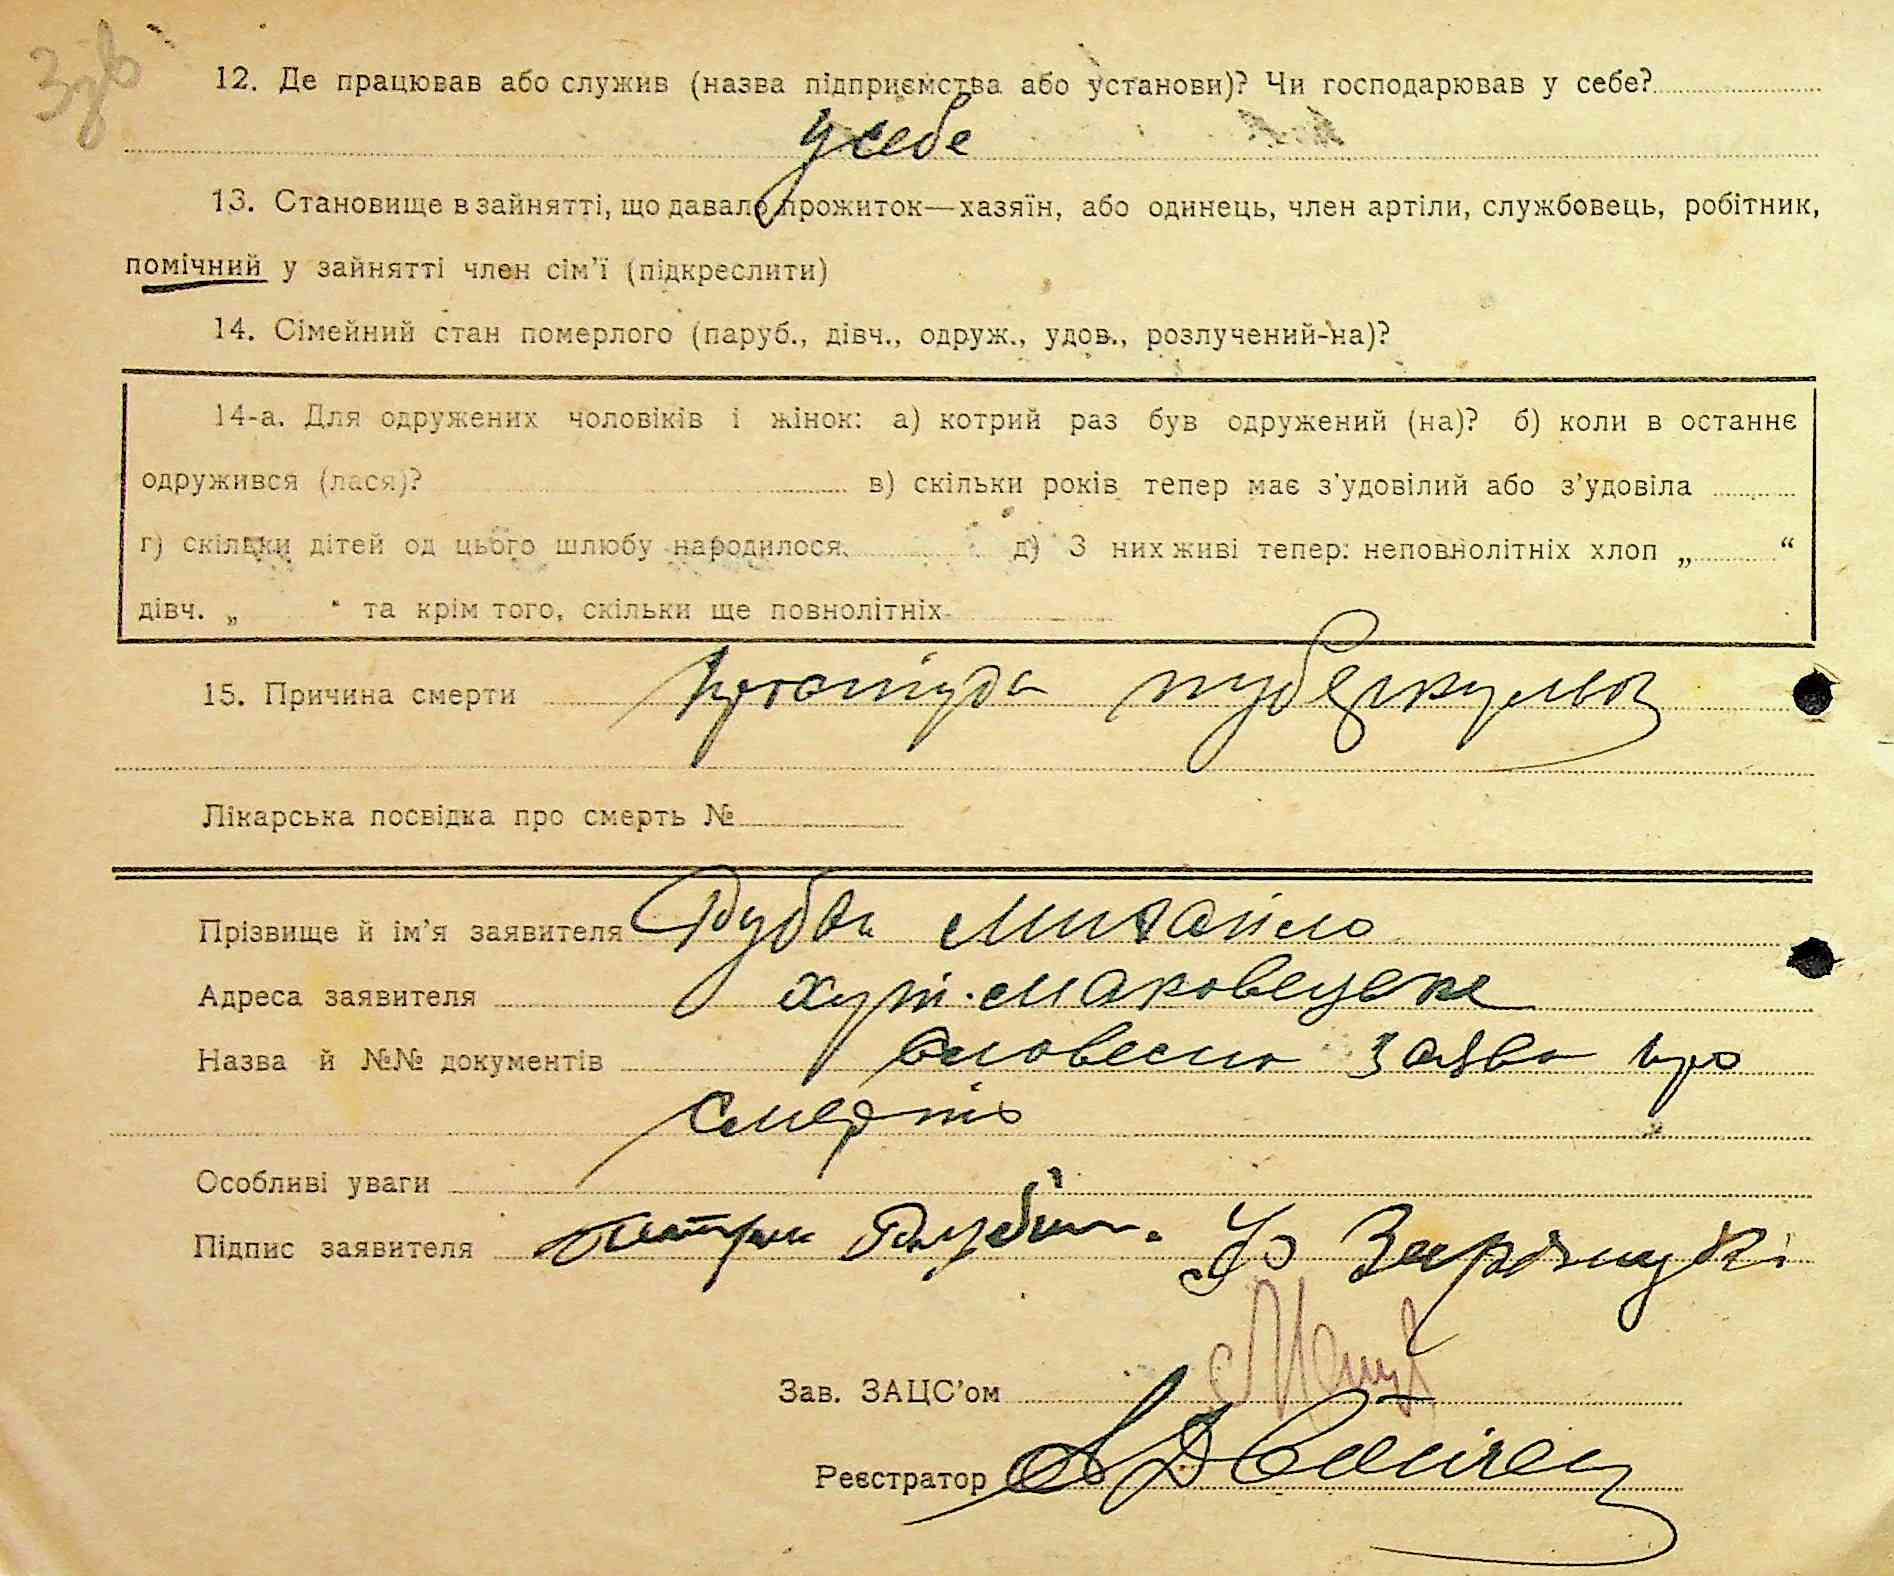 12. Де працював або служив (назва підприємства або установи)? Чи господарював у себе?
у себе
13. Становище в зайнятті, що давало прожиток—хазяїн, або одинець, член артіли, службовець, робітник,
помічний у зайнятті член сім’ї (підкреслити)
14. Сімейний стан померлого (паруб., дівч., одруж., удов., розлучений-на)?
14-а. Для одружених чоловіків і жінок: а) котрий раз був одружений (на)? б) коли в останнє
одружився (лася)? в) скільки років тепер має з’удовілий або з’удовіла
г) скільки дітей од цього шлюбу народилося д) З них живі тепер: неповнолітніх хлоп „ “
дівч. „ “ та крім того, скільки ще повнолітніх
15. Причина смерти туберкульоз
Лікарська посвідка про смерть №
Прізвище й ім’я заявителя Михайло
Адреса заявителя хут. Маковецьке
Назва й №№ документів словесно заява про
смерть
Особливі уваги
Підпис заявителя
Зав. ЗАЦС’ом
Реєстратор